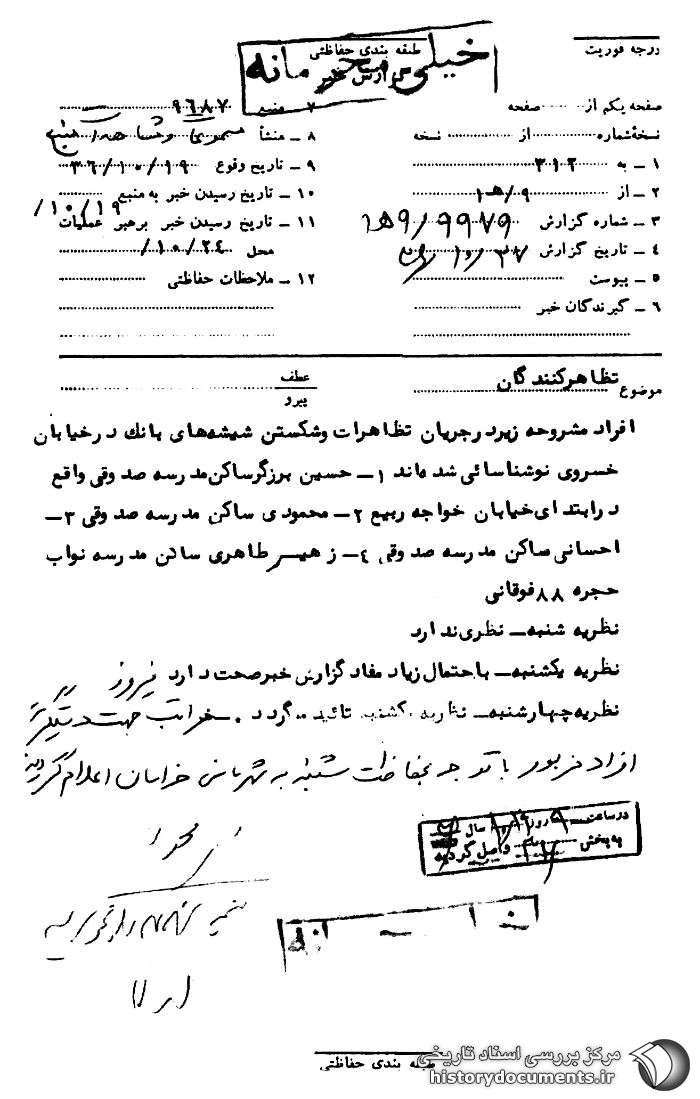 درجه فوریت
طبقه بندی حفاظتی
خیلی محرمانه
گزارش خبر
صفحه یکم از ............ صفحه
نسخهٔ شماره ............ از ............ نسخه
۱ ــ به ۳۱۲
۲ ــ از ۹/ﻫ۱
۳ ــ شماره گزارش ۹۹۷۹/۹ﻫ۱
۴ ــ تاریخ گزارش
۵ ــ پیوست
۶ ــ گیرندگان خبر
۷ ــ منبع ۹۶۸۷
۸ ــ منشأ
۹ ــ تاریخ وقوع ۳۶/۱۰/۱۹
۱۰ ــ تاریخ رسیدن خبر به منبع ۱۰/۱۹/
۱۱ ــ تاریخ رسیدن خبر برهبر عملیات
محل ۱۰/۲۴/
۱۲ ــ ملاحظات حفاظتی
موضوع تظاهرکنندگان
عطف
پیرو
افراد مشروحه زیر در جریان تظاهرات و شکستن شیشه‌های بانك در خیابان
خسروی نو شناسائی شده‌اند ۱ــ حسین برزگر ساکن مدرسه صدوقی واقع
در ابتدای خیابان خواجه ربیع ۲ــ محمودی ساکن مدرسه صدوقی ۳ــ
احسانی ساکن مدرسه صدوقی ۴ــ زهیر طاهری ساکن مدرسه نواب
حجره ۸۸ فوقانی
نظریه شنبه ــ نظری ندارد
نظریه یکشنبه ــ باحتمال زیاد مفاد گزارش خبر صحت دارد
نظریه چهارشنبه ــ نظریه یکشنبه تائید میگردد . مراتب جهت
افراد مزبور با توجه بحفاظت شنبه به شهربانی خراسان اعلام گردید
در ساعت روز سال
به بخش واصل گردید
طبقه بندی حفاظتی
مرکز بررسی اسناد تاریخی
historydocuments.ir